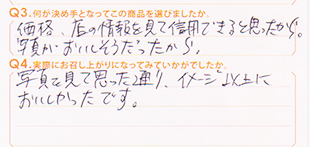 Q3.何が決め手となってこの商品を選びましたか。
価格、店の情報を見て信用できると思ったから。
写真がおいしそうだったから。
Q4.実際にお召し上がりになってみていかがでしたか。
写真を見て思った通り、イメージ以上に
おいしかったです。